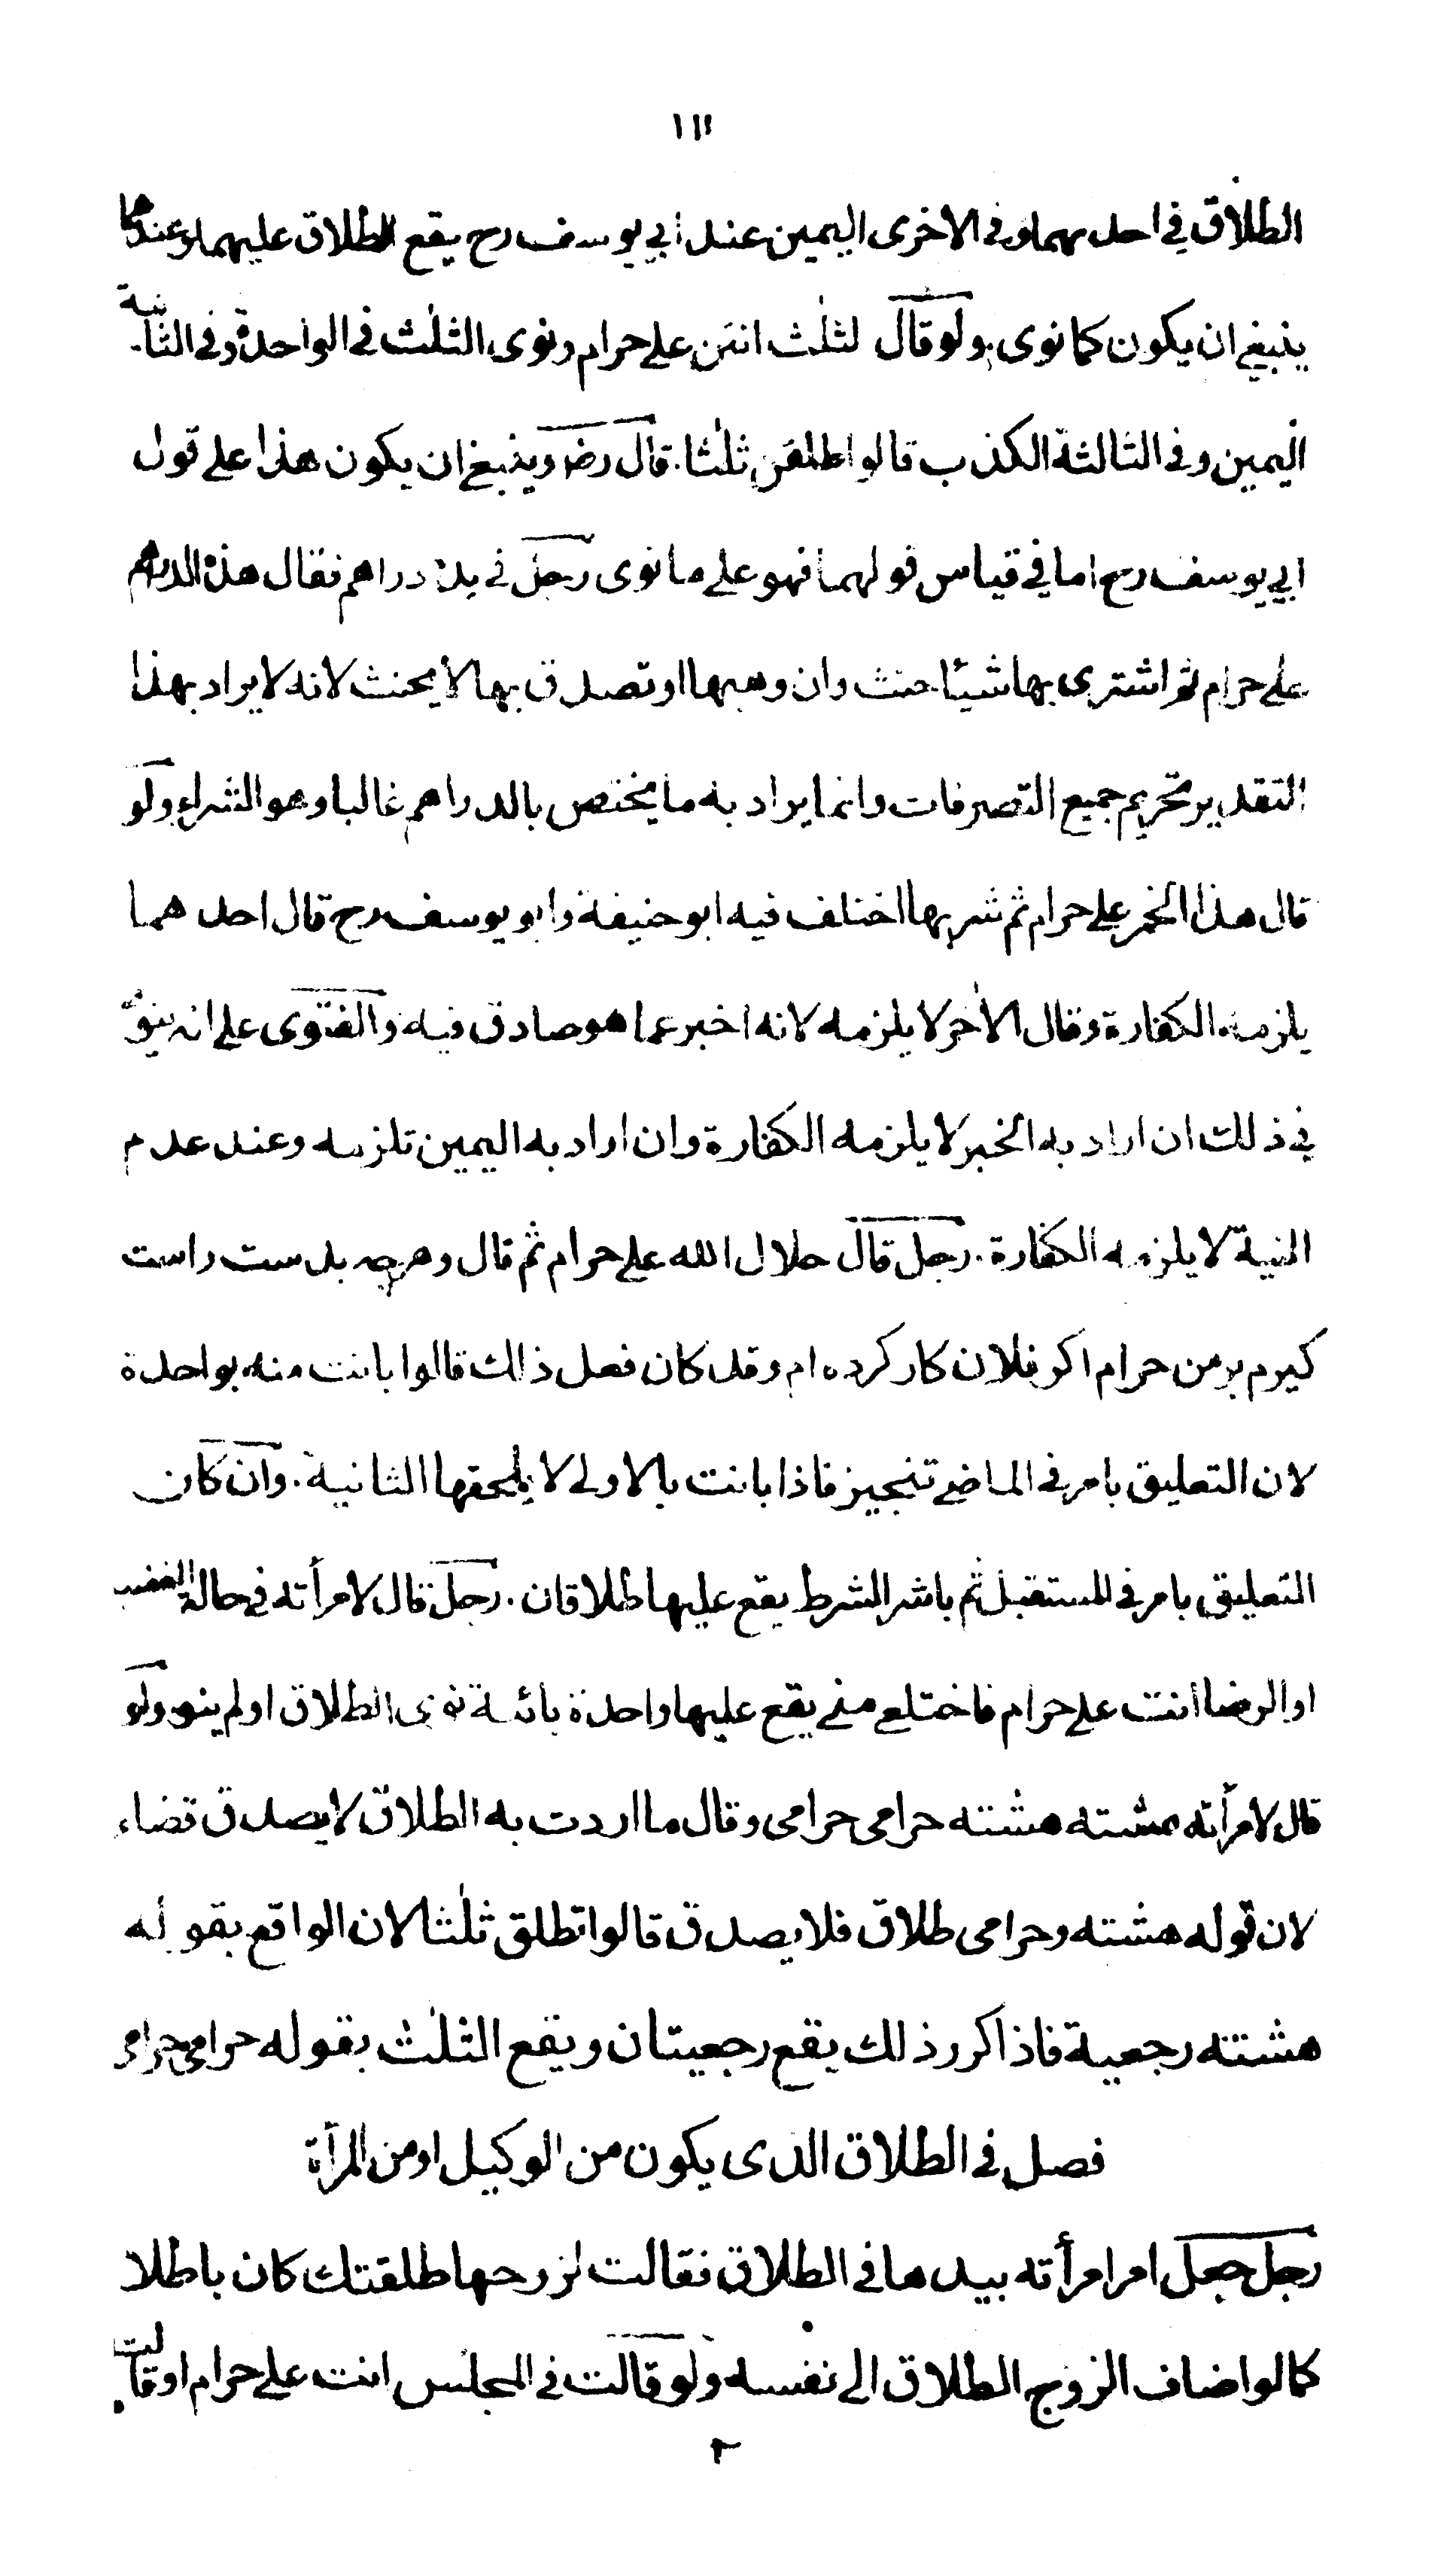 ١١١
الطلاق في احدىهما وفي الاخرى اليمين عند ابي يوسف رح يقع الطلاق عليهما وعندهما
ينبغي ان يكون كما نوى ولو قال لثلٰث انتن علي حرام ونوى الثلٰث في الواحدة وفي الثانية
اليمين وفي الثالثة الكذب قالوا طلقن ثلٰثا. قال رضـ وينبغي ان يكون هذا على قول
ابي يوسف رح اما في قياس قولهما فهو على ما نوى رجل في يده دراهم فقال هذه الدراهم
علي حرام ثم اشترى بها شيئا حنث وان وهبها او تصدق بها لا يحنث لانه لا يراد بهذا
التقدير تحريم جميع التصرفات وانما يراد به ما يختص بالدراهم غالبا وهو الشراء ولو
قال هذا الخمر علي حرام ثم شربها اختلف فيه ابو حنيفة وابو يوسف رح قال احدهما
يلزمه الكفارة وقال الاٰخر لا يلزمه لانه اخبر عما هو صادق فيه والفتوى على انه ينوى
في ذلك ان اراد به الخبر لا يلزمه الكفارة وان اراد به اليمين تلزمه وعند عدم
النية لا يلزمه الكفارة. رجل قال حلال الله علي حرام ثم قال وهرچه بدست راست
كيرم بر من حرام اكر فلان كار كرده ام وقد كان فعل ذالك قالوا بانت منه بواحدة
لان التعليق بامر في الماضي تنجيز فاذا بانت بالاولى لا يلحقها الثانية. وان كان
التعليق بامر في المستقبل ثم باشر الشرط يقع عليها طلاقان. رجل قال لامرأته في حالة الغضب
او الرضا انت علي حرام فاختلعي مني يقع عليها واحدة بائنة نوى الطلاق او لم ينو ولو
قال لامرأته هشته هشته حرامى حرامى وقال ما اردت به الطلاق لا يصدق قضاء
لان قوله هشته وحرامى طلاق فلا يصدق قالوا تطلق ثلٰثا لان الواقع بقوله
هشته رجعية فاذا كرر ذلك يقع رجعيتان ويقع الثلٰث بقوله حرامى حرامى
فصل في الطلاق الذى يكون من الوكيل او من المرأة
رجل جعل امر امرأته بيدها في الطلاق فقالت لزوجها طلقتك كان باطلا
كما لو اضاف الزوج الطلاق الى نفسه ولو قالت في المجلس انت علي حرام او قالت